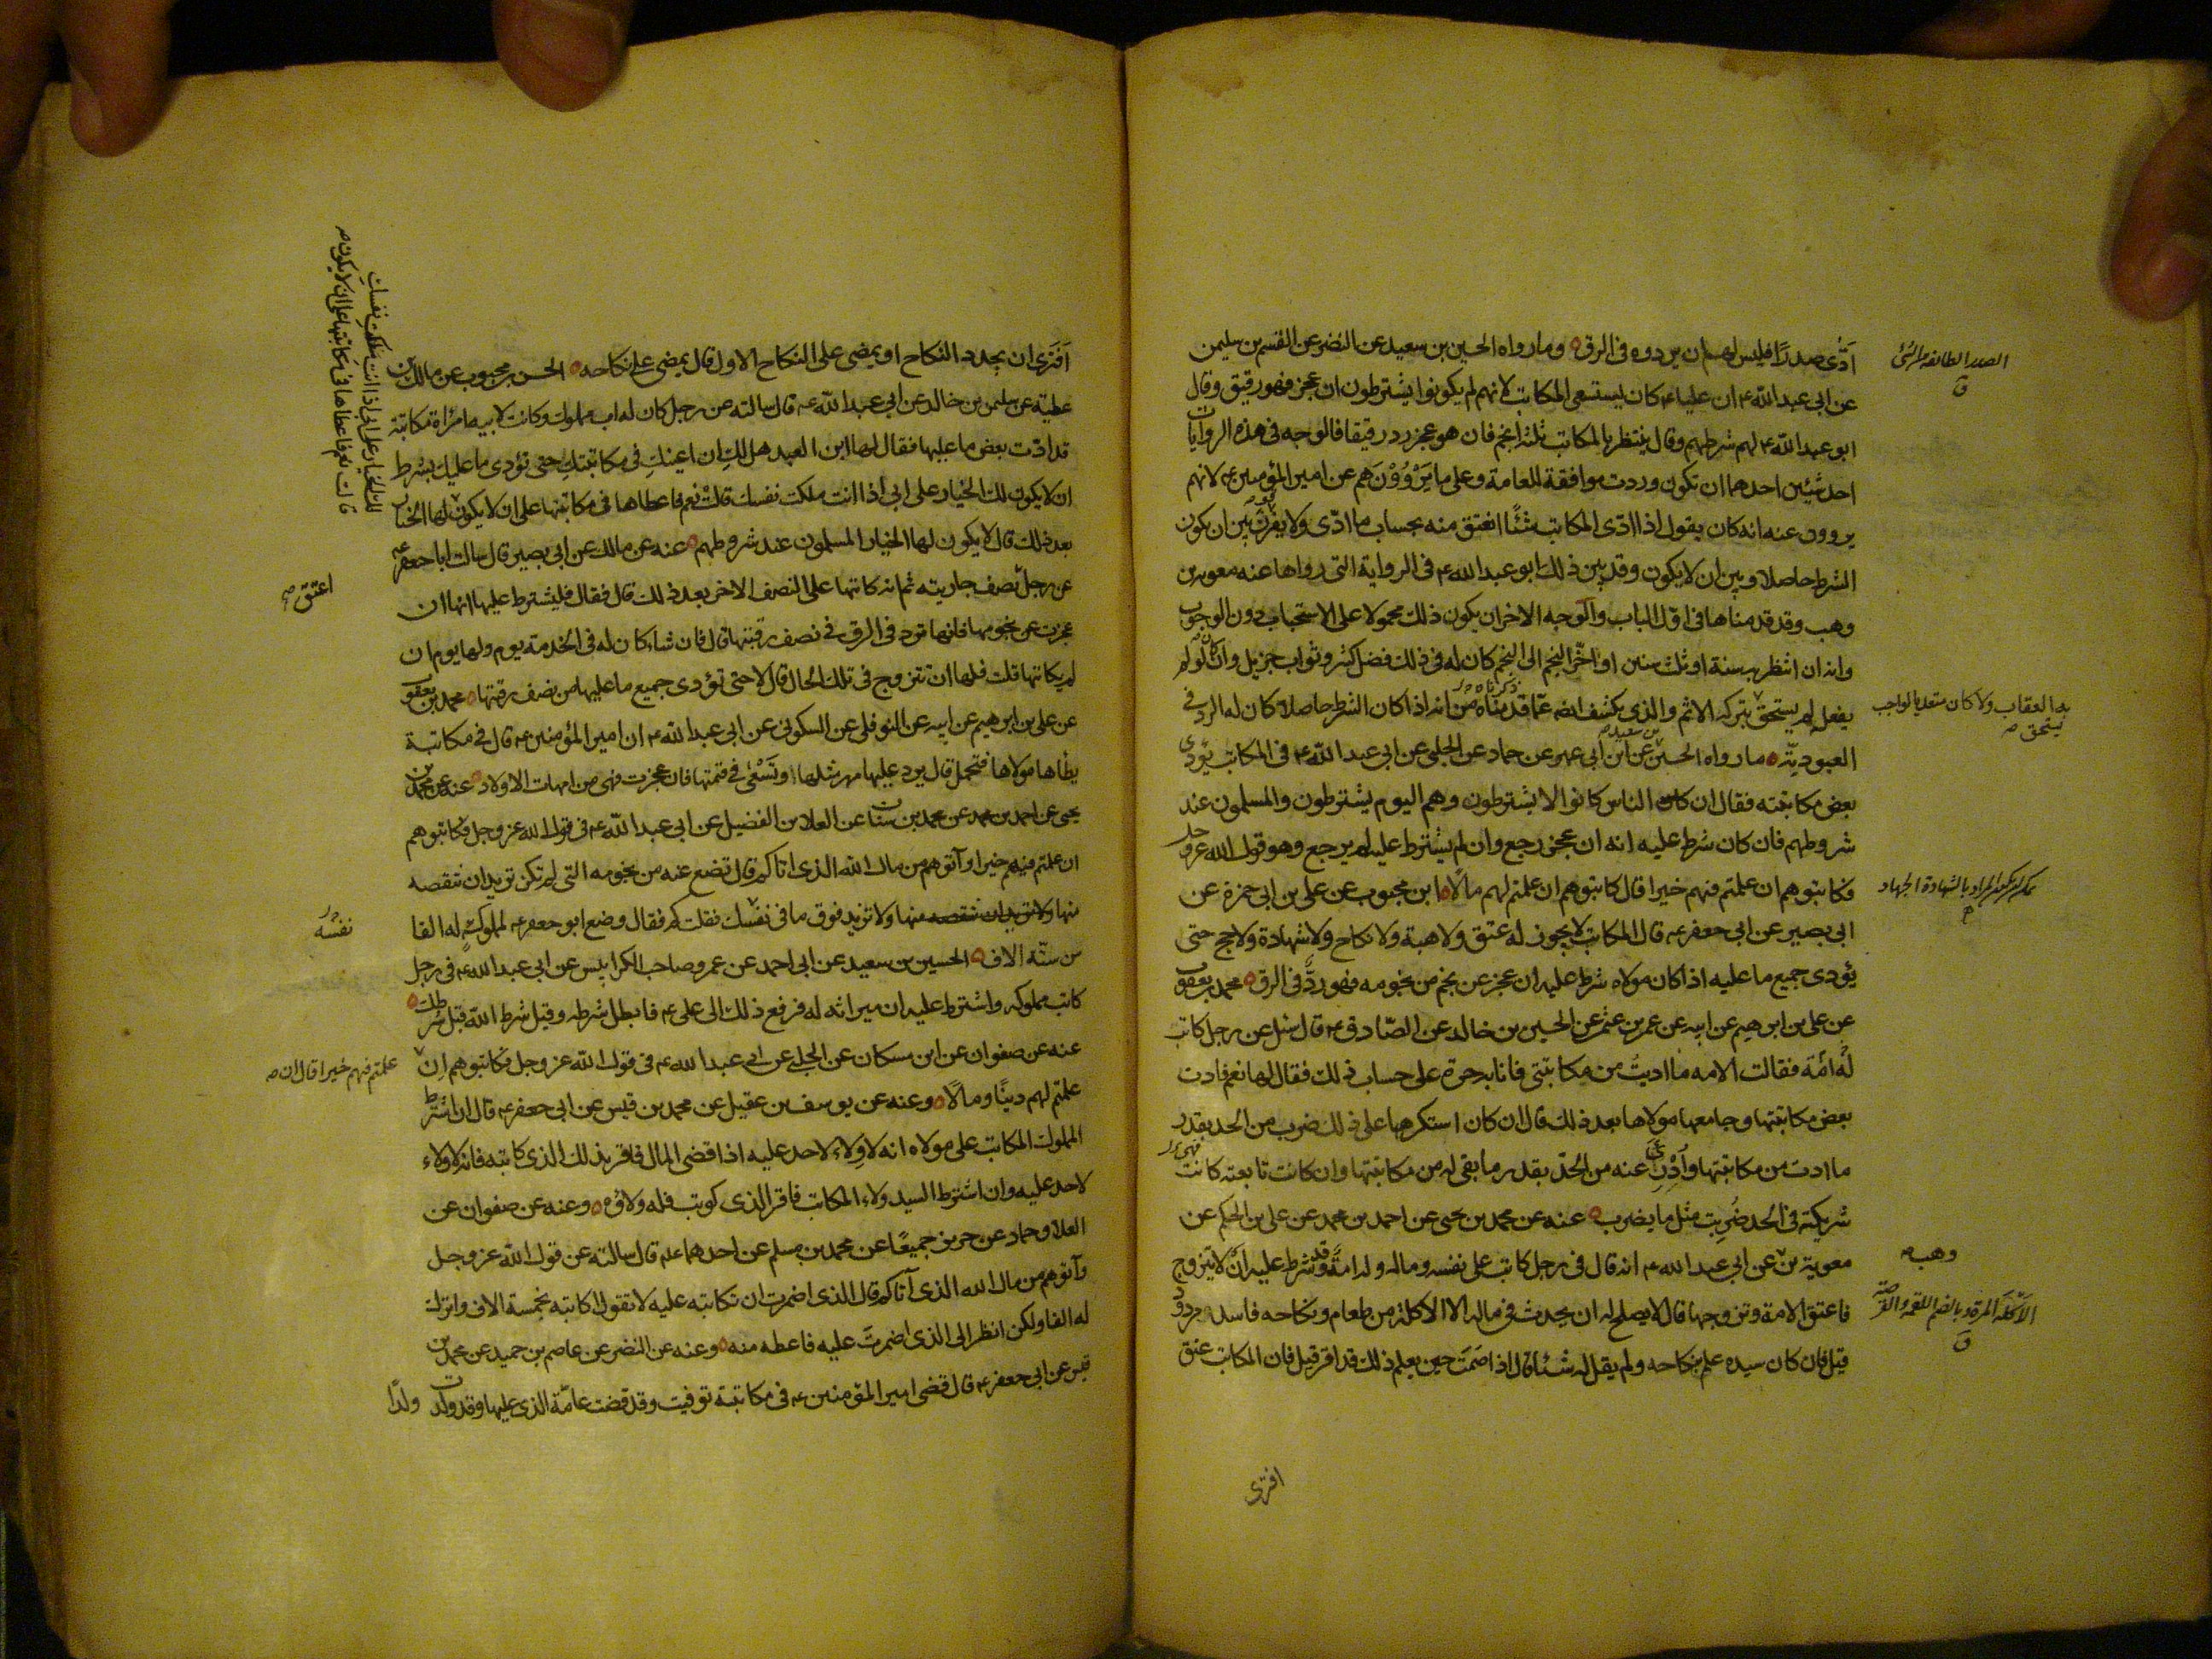 ادّى صدرًا فليس لهم ان يردوه فى الرق وما رواه الحسين بن سعيد عن النضر عن القسم بن سليمن
عن ابى عبد الله ع ان عليا ع كان يستسعى المكاتب لانهم لم يكونوا يشترطون ان عجز فهو رقيق وقال
ابو عبد الله ع لهم شرطهم وقال ينتظر بالمكاتب ثلثة انجم فان هو عجز رد رقيقا فالوجه فى هذه الروايات
احد شيئين احدهما ان تكون وردت موافقة للعامة وعلى ما يَرْوُوْنَهم عن امير المؤمنين ع لانهم
يروون عنه انه كان يقول اذا ادّى المكاتب شئًا انعتق منه بحساب ما ادّى ولا يفرق بين ان يكون
الشرط حاصلا وبين ان لا يكون وقد بين ذلك ابو عبد الله ع فى الرواية التى رواها عنه معوية بن
وهب وقد قدمناها فى اوّل الباب والوجه الاخر ان يكون ذلك محمولا على الاستحباب دون الوجوب
وانه ان انتظر به سنة او ثلث سنين او اخّر النجم الى النجم كان له فى ذلك فضل كثير وثواب جزيل وان كان لو لم
يفعل لم يستحق بتركه الاثم والذى يكشف ايضا عمّا قدمناه من انه اذا كان الشرط حاصلا كان له الرد فى
العبوديّة ما رواه الحسين بن سعيد عن ابن ابى عمير عن حماد عن الحلبى عن ابى عبد الله ع فى المكاتب يؤدى
بعض مكاتبته فقال ان الناس كانوا لا يشترطون وهم اليوم يشترطون والمسلمون عند
شروطهم فان كان شرط عليه انه ان عجز رجع وان لم يشترط عليه لم يرجع وهو قول الله عز وجل
فكاتبوهم ان علمتم فيهم خيرا قال كاتبوهم ان علمتم لهم مالًا ابن محبوب عن على بن ابى حمزة عن
ابى بصير عن ابى جعفر ع قال المكاتب لا يجوز له عتق ولا هبة ولا نكاح ولا شهادة ولا حج حتى
يؤدى جميع ما عليه اذا كان مولاه شرط عليه ان عجز عن نجم من نجومه فهو ردّ فى الرق محمد بن يعقوب
عن على بن ابرهيم عن ابيه عن عمر بن عثمن عن الحسين بن خالد عن الصّادق ع قال سئل عن رجل كاتب
امَة له فقالت الامه ما اديتُ من مكاتبتى فانا به حرة على حساب ذلك فقال لها نعم فادت
بعض مكاتبتها وجامعها مولاها بعد ذلك قال ان كان استكرهها على ذلك ضرب من الحد بقدر
ما ادت من مكاتبتها وادرئ عنه من الحدّ بقدر ما بقى له من مكاتبتها وان كانت تابعته كانت
شريكته فى الحد ضُرِبت مثل ما يضرب عنه عن محمد بن يحيى عن احمد بن محمد عن على بن الحكم عن
معوية بن عن ابى عبد الله ع انه قال فى رجل كاتب على نفسه وماله وله امةٌ وقد شرط عليه ان لا يتزوج
فاعتق الامة وتزوجها قال لا يصلح له ان يحدث فى ماله الا الاكلة من طعام ونكاحه فاسد مردود
قيل فان كان سيده علم بنكاحه ولم يقل له شئًا قال اذا صَمَتَ حين يعلم ذلك قد اقر قيل فان المكاتب عتق
الصدر الطائفة من الشئ
ق
به العقاب ولا كان متعديا لواجب
يستحق
يمكن ان يكون المراد بالشهادة الجهاد
وهب
الاَكْلَة المرة وبالضم اللقمة والقرصة
ق
افترى
اَفَتَرى ان يجدد النكاح او يمضى على النكاح الاول قال يمضى على نكاحه الحسن بن محبوب عن مالك بن
عطية عن سليمن بن خالد عن ابى عبد الله ع قال سالته عن رجل كان له اب مملوك وكانت لابيه امرأة مكاتبة
قد ادّت بعض ما عليها فقال لها ابن العبد هل لكِ ان اعينكِ فى مكاتبتكِ حتى تؤدى ما عليك بشرط
ان لا يكون لك الخيار على ابى اذا انت ملكت نفسك قالتْ نعم فاعطاها فى مكاتبتها على ان لا يكون لها الخيار
بعد ذلك قال لا يكون لها الخيار المسلمون عند شروطهم عنه عن مالك عن ابى بصير قال سالت ابا جعفر ع
عن رجل نصف جاريته ثم انه كاتبها على النصف الاخر بعد ذلك قال فقال فليشترط عليها انها ان
عجزت عن نجومها فانها ترد فى الرق فى نصف رقبتها قال فان شاء كان له فى الخدمة يوم ولها يوم ان
لم يكاتبها قلت فلها ان تتزوج فى تلك الحال قال لا حتى تؤدى جميع ما عليها من نصف رقبتها محمد بن يعقوب
عن على بن ابرهيم عن ابيه عن النوفلى عن السكونى عن ابى عبد الله ع ان امير المؤمنين ع قال فى مكاتبة
يطأها مولاها فتحمل قال يرد عليها مهر مثلها وتَسْعٰى فى قيمتها فان عجزت فهى من امهات الاولاد عنه عن محمد بن
يحيى عن احمد بن محمد عن محمد بن سنان عن العلا بن الفضيل عن ابى عبد الله ع فى قول الله عز وجل فكاتبوهم
ان علمتم فيهم خيرا وآتوهم من مال الله الذى اتاكم قال تضع عنه من نجومه التى لم تكن تريد ان تنقصه
منها ولا تزيد فوق ما فى نفسك فقلت كم فقال وضع ابو جعفر ع لمملوك له الفا
من ستّة الاف الحسين بن سعيد عن ابى احمد عن عمرو صاحب الكرابيس عن ابى عبد الله ع فى رجل
كاتب مملوكه واشترط عليه ان ميراثه له فرفع ذلك الى على ع فابطل شرطه وقيل شرط الله قبل شرطك
عنه عن صفوان عن ابن مسكان عن الحلبى عن ابى عبد الله ع فى قول الله عز وجل فكاتبوهم اِن
علمتم لهم دينًا ومالًا وعنه عن يوسف بن عقيل عن محمد بن قيس عن ابى جعفر ع قال ان اشترط
المملوك المكاتب على مولاه انه لا ولاء لاحد عليه اذا قضى المال فاقر بذلك الذى كاتبه فانه لا ولاء
لاحد عليه وان اشترط السيد ولاء المكاتب فاقر الذى كوتب فله ولاؤه وعنه عن صفوان عن
العلا وحماد عن حريز جميعًا عن محمد بن مسلم عن احدهما ع قال سالته عن قول الله عز وجل
وآتوهم من مال الله الذى آتاكم قال الذى اضمرت ان تكاتبه عليه لا تقول اكاتبه بخمسة الاف واترك
له الفا ولكن انظر الى الذى اضمرتَ عليه فاعطه منه وعنه عن النضر عن عاصم بن حميد عن محمد بن
قيس عن ابى جعفر ع قال قضى امير المؤمنين ع فى مكاتبة توفيت وقد قضت عامّة الذى عليها وقد ولدت ولدًا
لك الخيار على ابى اذا انت ملكت نفسك
قالت نعم فاعطاها فى مكاتبتها على ان لا يكون
اعتق
نفسه
علمتم فيهم خيرا قال ان